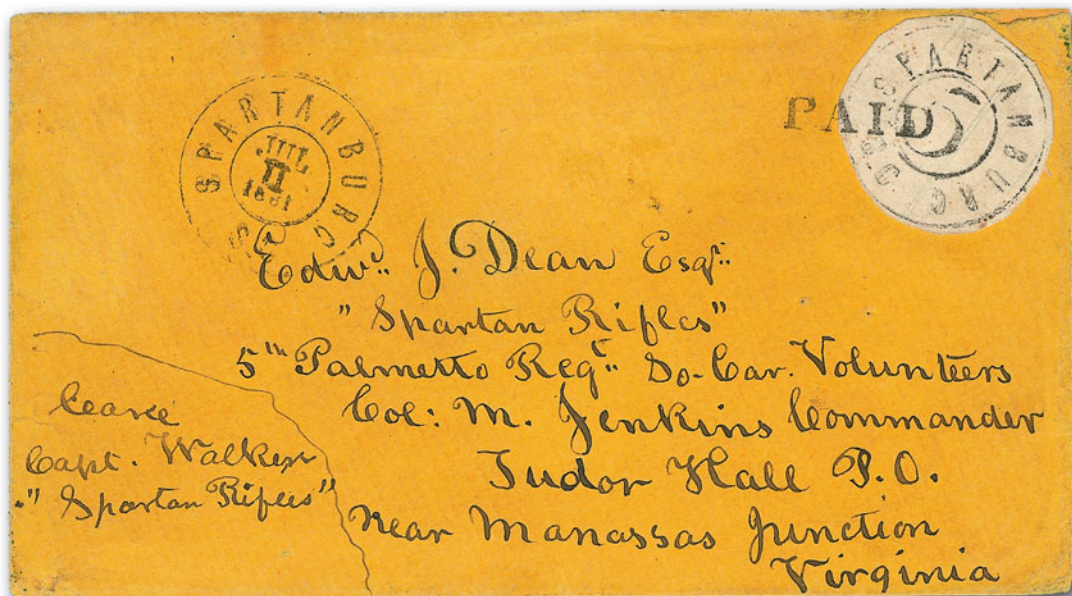 SPARTANBURG
S
JUL
11
1861
PAID
SPARTANBURG
5
Edwd. J. Dean Esqr.
"Spartan Rifles"
5th Palmetto Regt. So. Car. Volunteers
Col: M. Jenkins Commander
Tudor Hall P.O.
Near Manassas Junction
Virginia
Care
Capt. Walker
"Spartan Rifles"